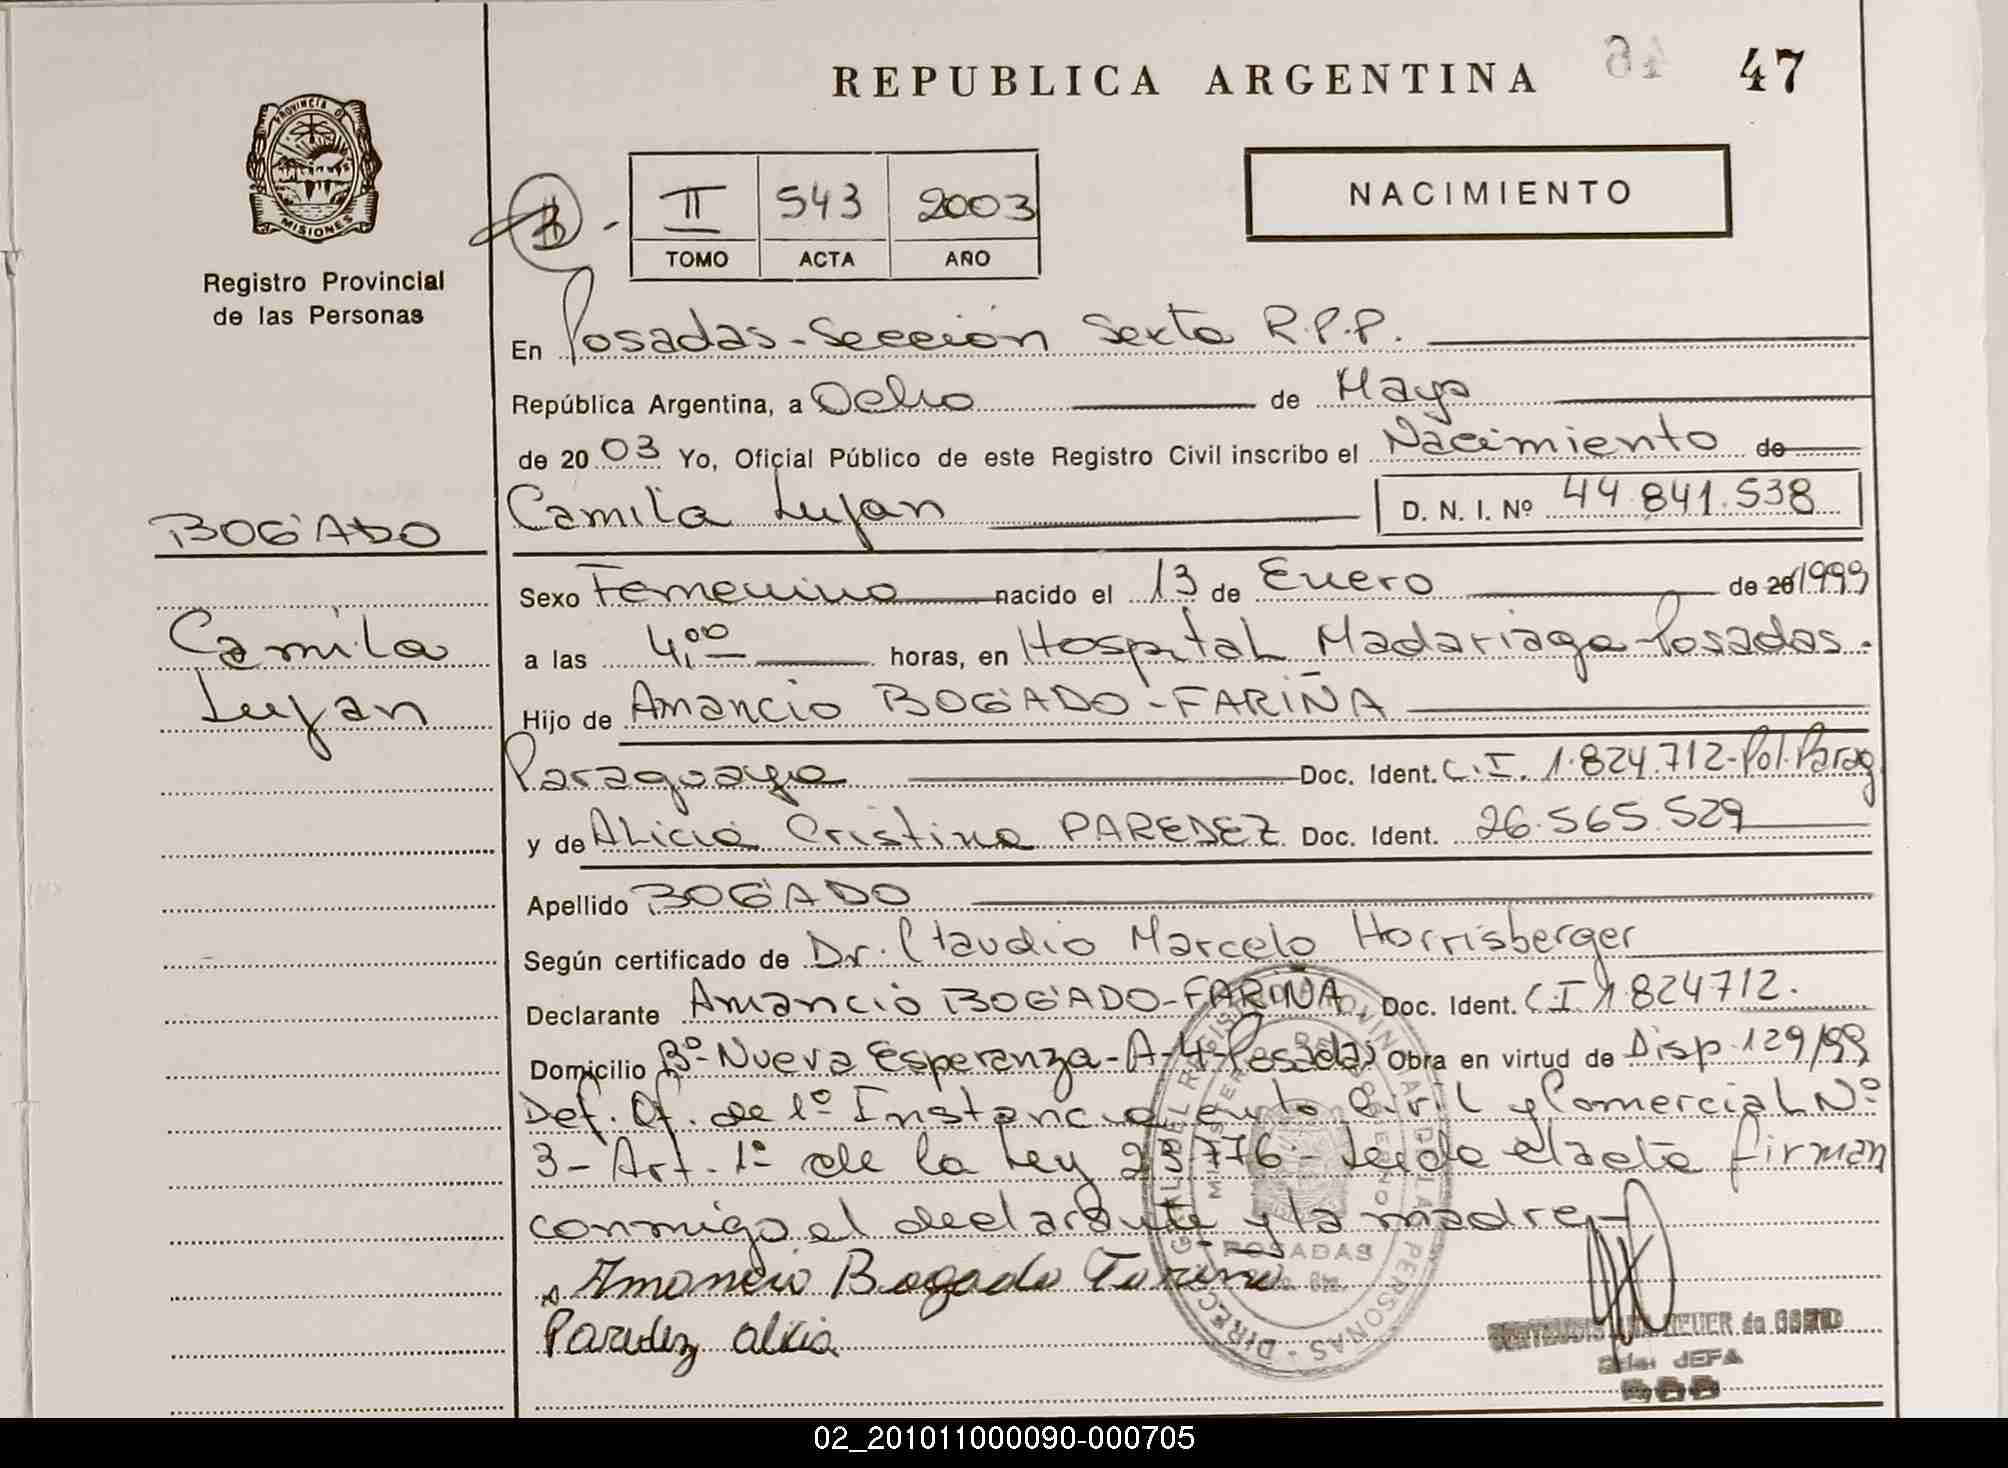 REPUBLICA ARGENTINA 46 47
PROVINCIA DE MISIONES
Registro Provincial
de las Personas
NACIMIENTO
II 543 2003
TOMO ACTA AÑO
En Posadas-Sección Sexta R.P.P.
República Argentina, a Ocho de Mayo
de 2003 Yo, Oficial Público de este Registro Civil inscribo el Nacimiento de
Camila Lujan D. N. I. Nº 44.841.538
BOGADO
Camila
Lujan
Sexo Femenino nacido el 13 de Enero de 20 1999
a las 4,00 horas, en Hospital Madariaga-Posadas.
Hijo de Amancio BOGADO-FARIÑA
Paraguayo Doc. Ident. C.I. 1.824.712-Pol.Parag
y de Alicia Cristina PAREDEZ Doc. Ident. 26.565.529
Apellido BOGADO
Según certificado de Dr. Claudio Marcelo Horrisberger
Declarante Amancio BOGADO-FARIÑA Doc. Ident. C.I 1.824712.
Domicilio Bº-Nueva Esperanza-A-4-Posadas Obra en virtud de Disp 129/99
Def. Of. de 1º Instancia en lo Civil y Comercial Nº
3-Art. 1º de la Ley 23.776- Leida el acta firman
conmigo el declarante y la madre
Amancio Bogado Farina
Paredez alicia
DIRECC GRAL DEL REGISTRO PROVINCIAL DE LAS PERSONAS
POSADAS
de
JEFA
02_201011000090-000705